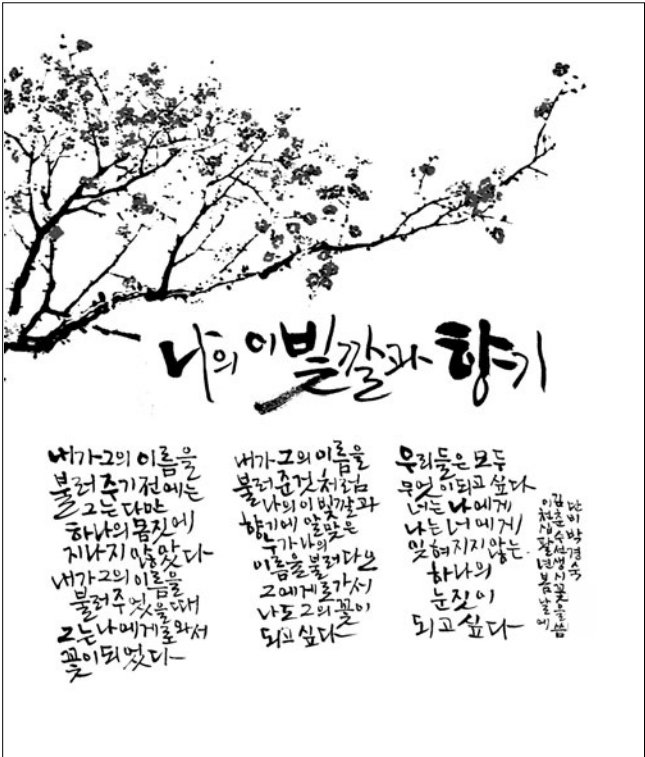 나의 이 빛깔과 향기
내가 그의 이름을
불러 주기 전에는
그는 다만
하나의 몸짓에
지나지 않았다
내가 그의 이름을
불러 주었을 때
그는 나에게로 와서
꽃이 되었다
내가 그의 이름을
불러 준 것처럼
나의 이 빛깔과
향기에 알맞은
누가 나의
이름을 불러 다오
그에게로 가서
나도 그의 꽃이
되고 싶다
우리들은 모두
무엇이 되고 싶다
너는 나에게
나는 너에게
잊혀지지 않는
하나의
눈짓이
되고 싶다
이천십팔년 봄날에
김춘수 선생 시 꽃을 씀
단비 박경숙